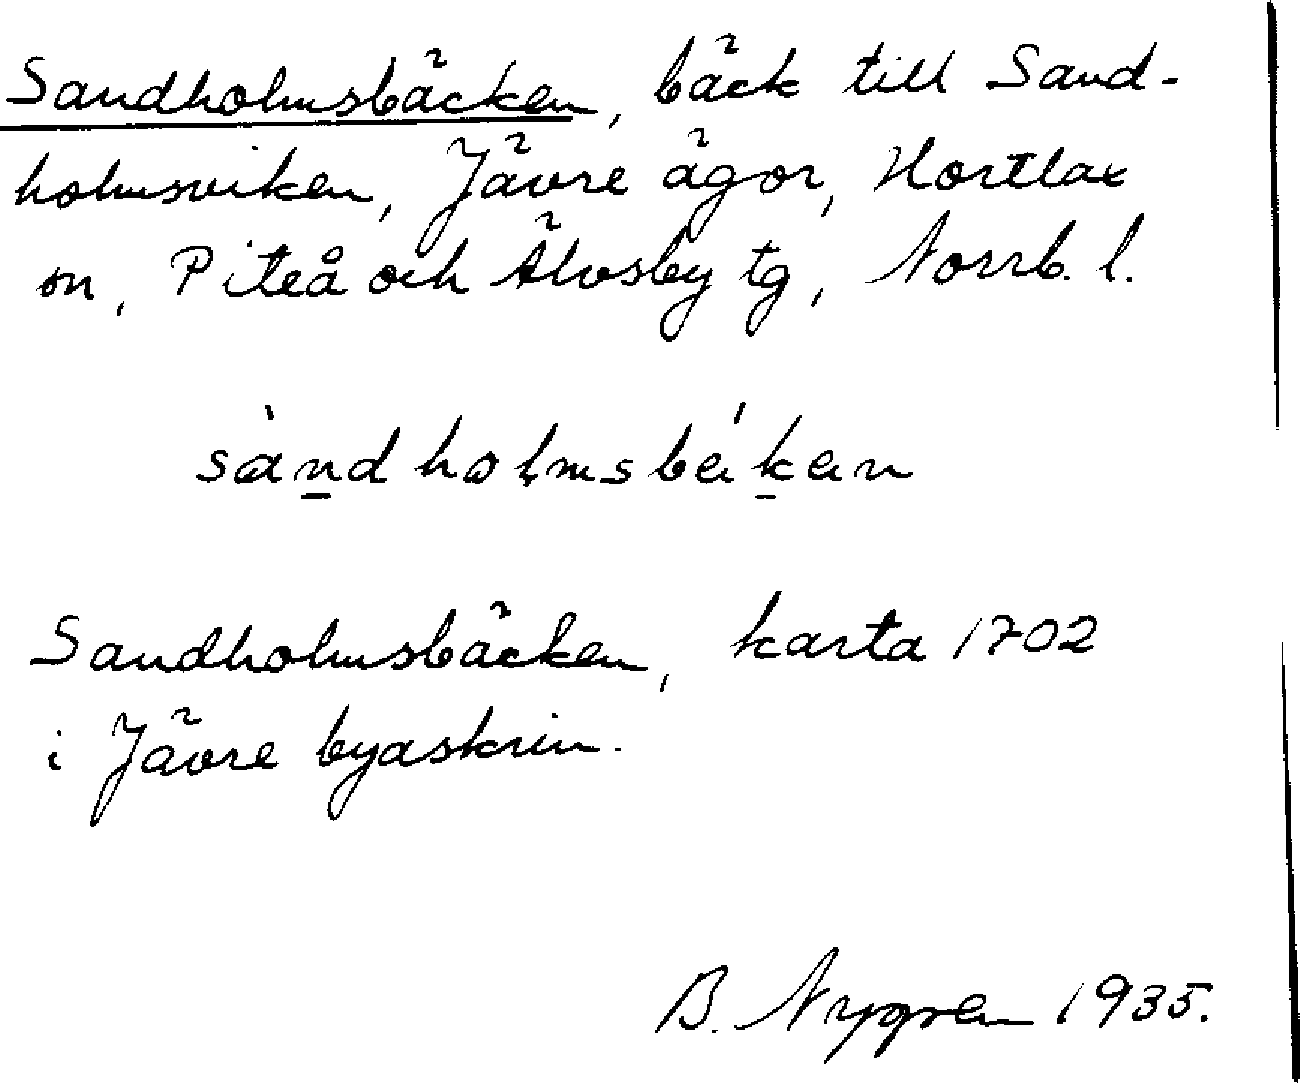 Sandholmsbäcken, bäck till Sand-
holmsviken, Jävre ägor, Hortlax
sn, Piteå och Älvsby tg, Norrb. l.
sàn̲dholmsbék̲en
Sandholmsbäcken, karta 1702
i Jävre byaskrin.
B. Nygren 1935.